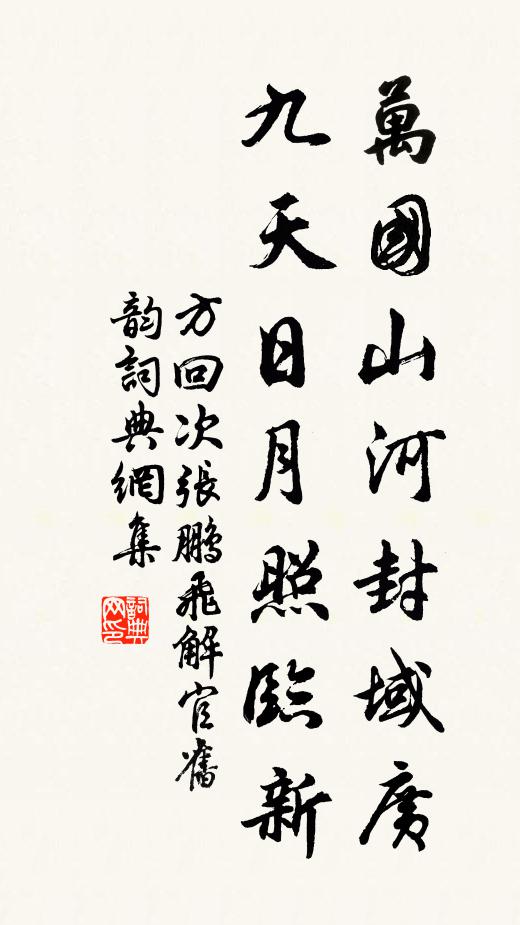 萬國山河封域廣
九天日月照臨新
方回次張鵬飛解官舊
韵詞典網集
詞典网印